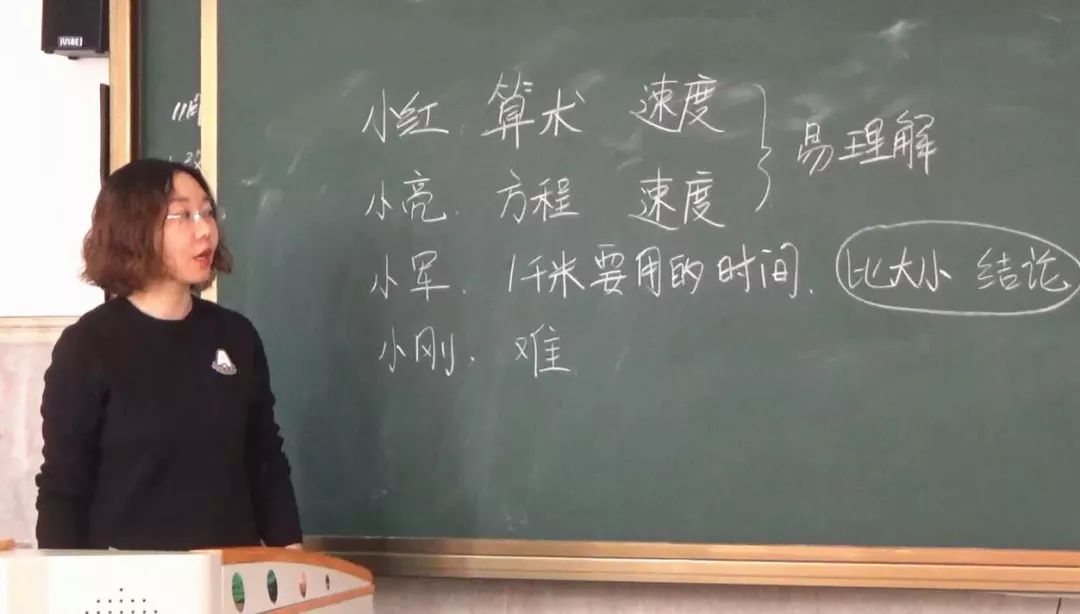 小红. 算术 速度
小亮. 方程 速度
易理解
小军. 1千米要用的时间. 比大小 结论
小刚. 难
11月